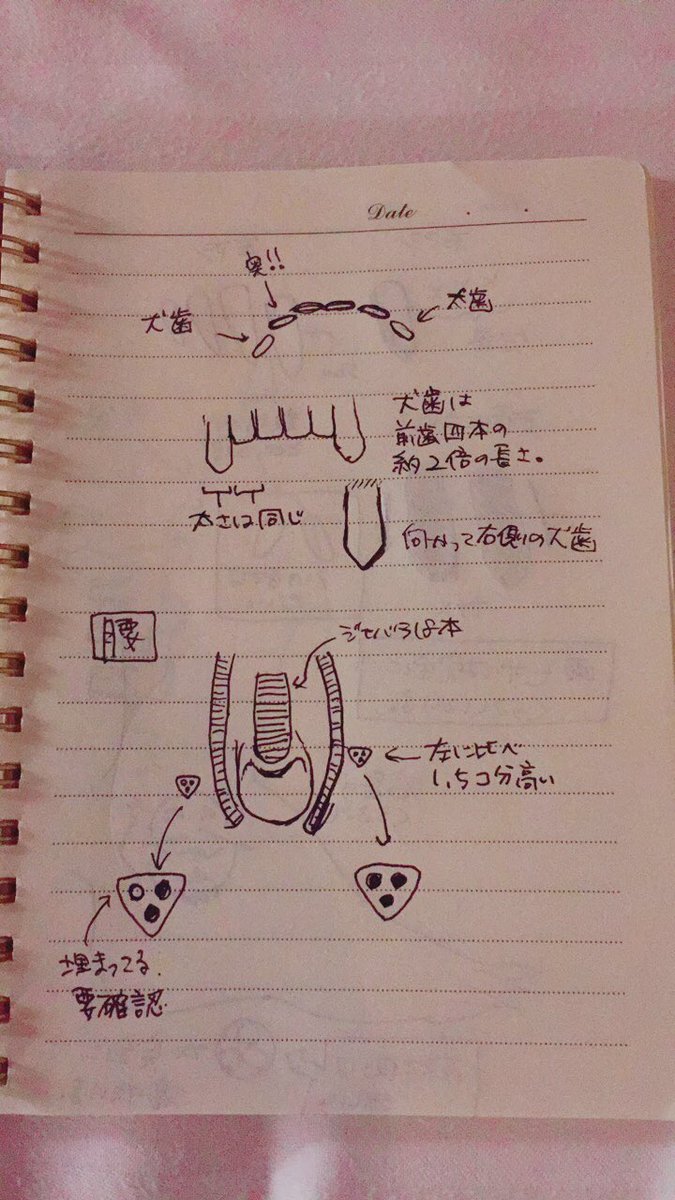 Date
奥!!
犬歯
犬歯
犬歯は
前歯四本の
約2倍の長さ。
太さは同じ
向かって右側の犬歯
腰
ジャバラは本
左に比べ
1,5コ分高い
埋まってる.
要確認